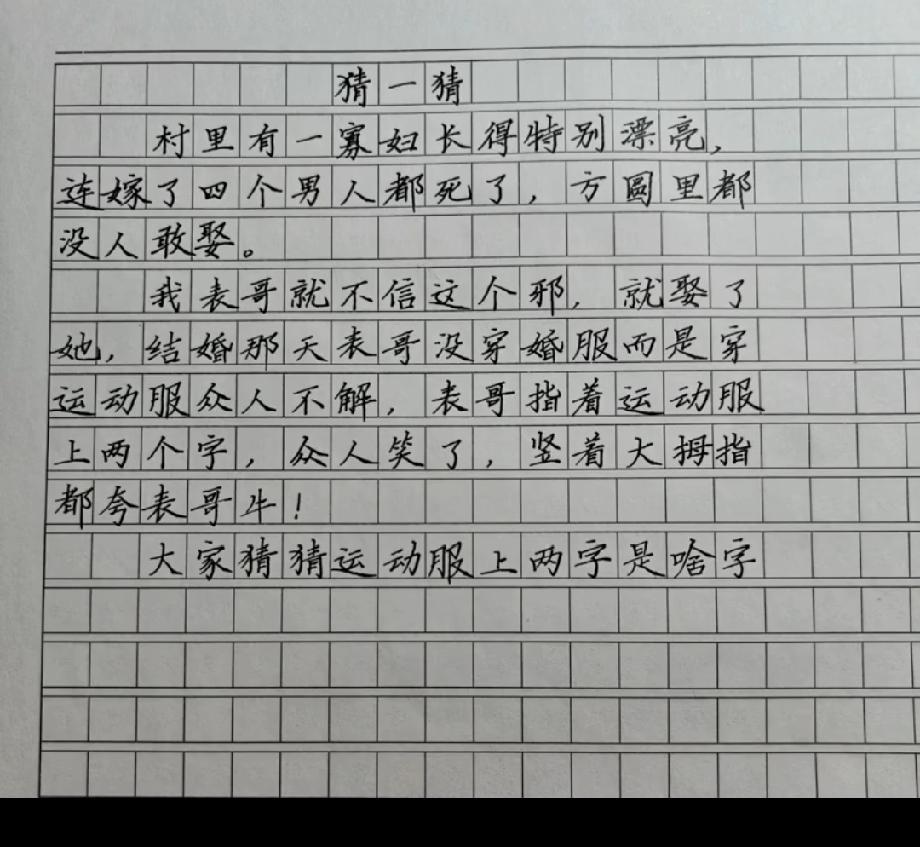 猜一猜
村里有一寡妇长得特别漂亮,
连嫁了四个男人都死了,方圆里都
没人敢娶。
我表哥就不信这个邪,就娶了
她,结婚那天表哥没穿婚服而是穿
运动服众人不解,表哥指着运动服
上两个字,众人笑了,竖着大拇指
都夸表哥牛!
大家猜猜运动服上两字是啥字